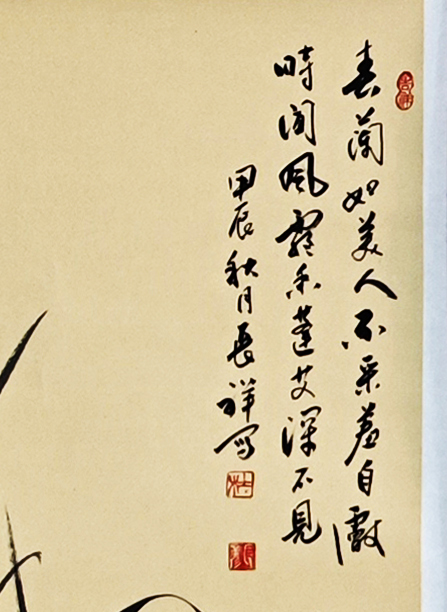 春蘭如美人不采羞自獻
時聞風露香蓬艾深不見
甲辰秋月長祥寫